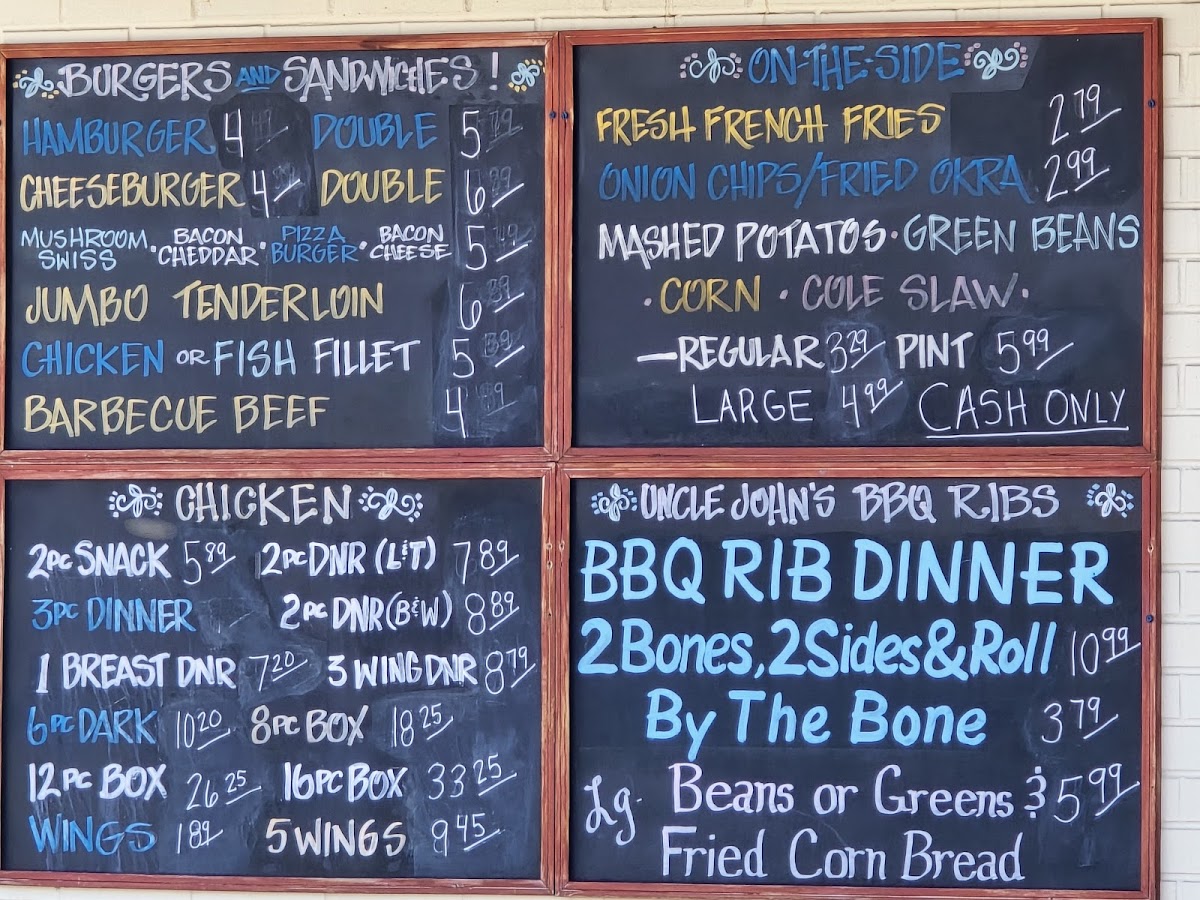 BURGERS AND SANDWICHES!
HAMBURGER 4 DOUBLE 5
CHEESEBURGER 4 DOUBLE 6
MUSHROOM SWISS · BACON CHEDDAR · PIZZA BURGER · BACON CHEESE 5
JUMBO TENDERLOIN 6
CHICKEN OR FISH FILLET 5
BARBECUE BEEF 4
ON-THE-SIDE
FRESH FRENCH FRIES 2 79
ONION CHIPS/FRIED OKRA 2 99
MASHED POTATOS · GREEN BEANS
· CORN · COLE SLAW ·
—REGULAR 3 29 PINT 5 99
LARGE 4 99 CASH ONLY
CHICKEN
2PC SNACK 5 89 2PC DNR (L&T) 7 89
3PC DINNER 2PC DNR (B&W) 8 89
1 BREAST DNR 7 20 3 WING DNR 8 79
6PC DARK 10 20 8PC BOX 18 25
12PC BOX 26 25 16PC BOX 33 25
WINGS 1 89 5 WINGS 9 45
UNCLE JOHN'S BBQ RIBS
BBQ RIB DINNER
2 Bones, 2 Sides & Roll 10 99
By The Bone 3 79
Lg. Beans or Greens & 5 99
Fried Corn Bread